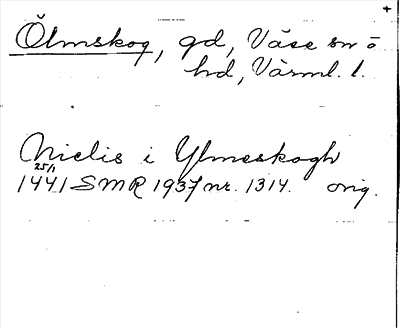 +
Ölmskog, gd, Väse sn o
hd, Värml. l.
Nielis i Ylmeskogh
25/1
1441 SMR 1937 nr. 1314. orig.